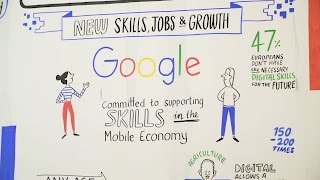 NEW SKILLS, JOBS & GROWTH
Google
Committed to supporting
SKILLS in the
Mobile Economy
47%
EUROPEANS
DON'T HAVE
THE NECESSARY
DIGITAL SKILLS
FOR THE FUTURE
150
-200
TIMES
AGRICULTURE
DIGITAL
ALLOWS A
ANY AGE